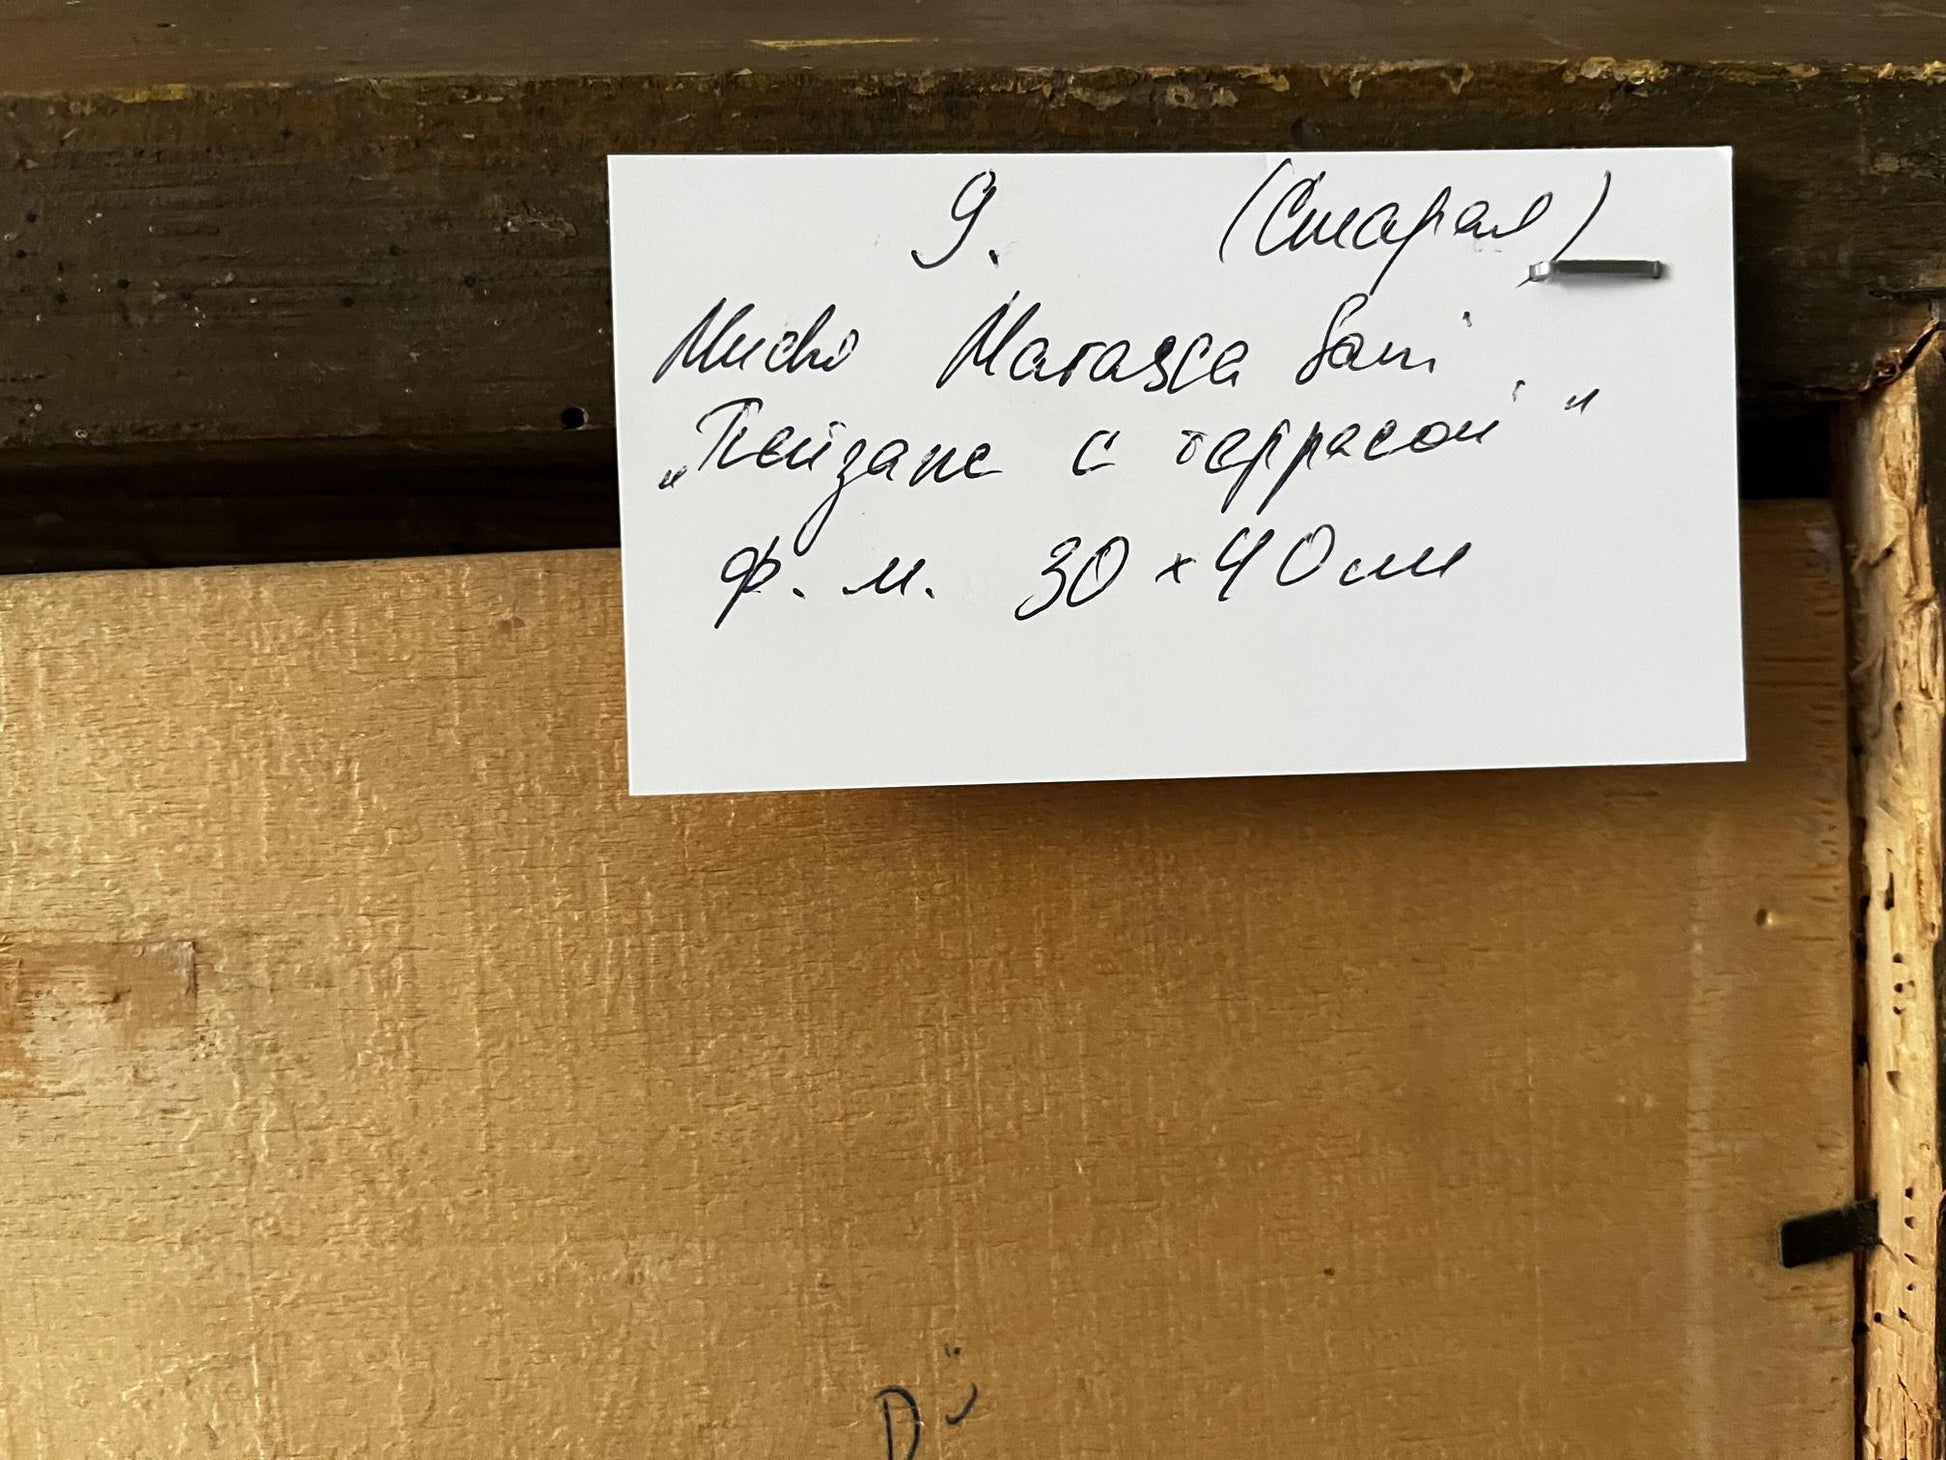 9. (Старая)
Mucho Marasca Sani
„Пейзаж с террасой"
ф. м. 30 x 40 см